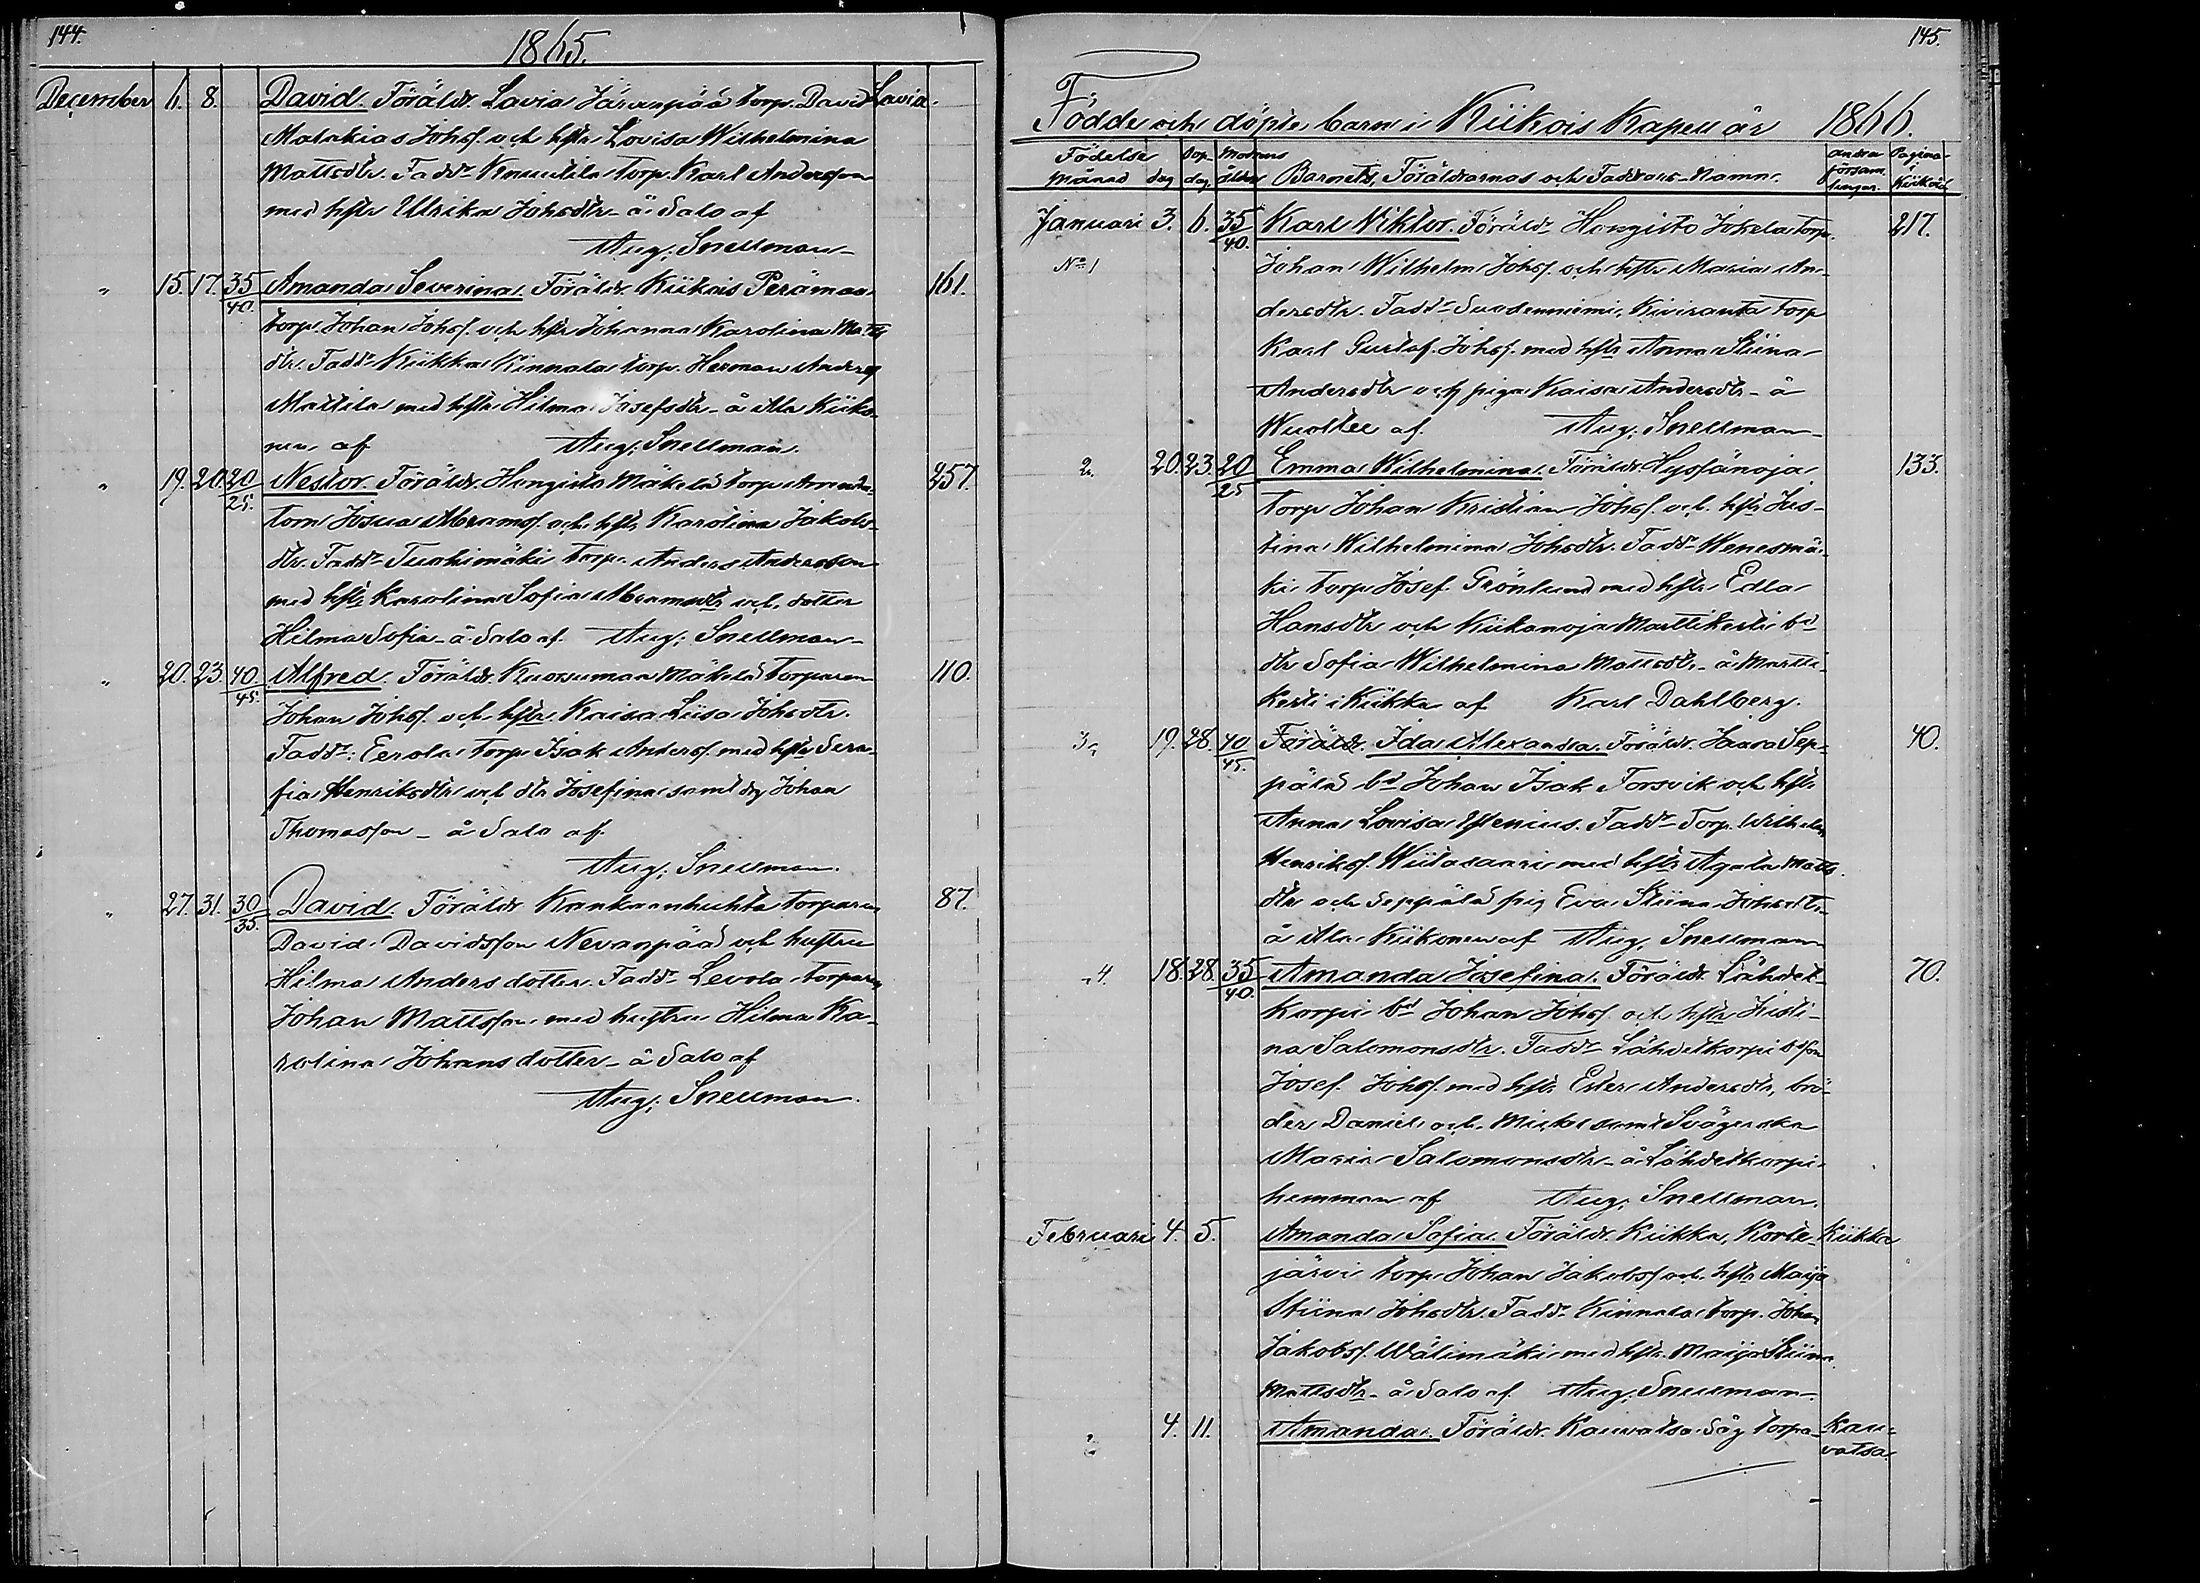 144.
1865.
December 6. 8. David. Föräldr. Lavia Järvenpää torp. David Lavia.
Malakias Johsf. och hstr Lovisa Wilhelmina
Mattsdtr. Fadd. Knuutila torp. Karl Andersson
med hstr Ulrika Johsdtr - å Salo af
Aug. Snellman
" 15. 17. 35/40. Amanda Severina. Föräldr. Kiikois Perämaa 161.
torp. Johan Johsf. och hstr Johanna Karolina Matts
dtr. Fadd. Kiikka Kinnala torp. Herman Andersf
Mattila med hstr Hilma Josefsdtr - å Ala Kiiko-
nen af Aug. Snellman.
" 19. 20. 20/25. Nestor. Föräldr. Hongisto Mäkelä torp 257.
torn Josua Abramsf. och hstr Karolina Jakobs-
dtr. Fadd. Tuohimäki torp. Anders Andersson
med hstr Karolina Sofia Abramsdtr och dotter
Hilma Sofia - å Salo af Aug. Snellman
" 20. 23. 40/45. Alfred. Föräldr. Kuorsumaa Mäkelä torparen 110.
Johan Johsf. och hstr Kaisa Liisa Johsdtr.
Fadd. Eerola torp Isak Andersf. med hstr Sera-
fia Henriksdtr och dtr Josefina samt dg Johan
Thomasson - å Salo af.
Aug. Snellman.
" 27. 31. 30/35. David. Föräldr Kankaanhuhta torparen 87.
David Davidsson Nevanpää och hustru
Hilma Anders dotter. Fadd. Levola torparen
Johan Mattsson med hustru Hilma Ka-
rolina Johans dotter - å Salo af
Aug. Snellman.
145.
Födde och döpte barn i Kiikois Kapell år 1866.
Födelse Dop Modrens andra Pagina
Månad dag dag ålder Barnets, Föräldrarnas och Faddrars Namn. församlingar. Kiikois
Januari 3. 6. 35/40. Karl Viktor. Föräldr Hongisto Jokela torp. 217.
No 1 Johan Wilhelm Johsf. och hstr Maria An-
dersdtr. Fadd. Suodenniemi, Kiviranta torp
Karl Gustaf Johsf. med hstr Anna Stiina
Andersdtr och piga Kaisa Andersdtr - å
af Aug. Snellman
2. 20. 23. 20/25 Emma Wilhelmina. Föräldr. Hyssänoja 133.
torp Johan Kristian Johsf. och hstr Jus-
tina Wilhelmina Johsdtr. Fadd. Wenesmä-
ki torp Josef Grönlund med hstr Edla
Hansdtr och Kiikanoja Marttikerti bd
dtr Sofia Wilhelmina Mattsdtr - å Martti-
kerti i Kiikka af Karl Dahlberg.
3. 19. 28. 40/45. Föräldr. Ida Alexandra. Föräldr. Jaara Sep- 40.
pälä bd Johan Isak Forsvik och hstr
Anna Lovisa Fadd. Torp. Wilhelm
Henriksf. Wiitasaari med hstr Agata Matts
dtr och Seppälä pig Eva Stiina Johsdtr
å Ala Kiikonen af Aug. Snellman
4. 18. 28. 35/40. Amanda Josefina. Föräldr. Lähdet- 70.
korpi bd Johan Johsf. och hstr Justi-
na Salomonsdtr. Fadd. Lähdetkorpi bdson
Josef Johsf. med hstr Ester Andersdtr, brö-
der Daniel och Mickel samt Svägerska
Maria Salomonsdtr - å Lähdetkorpi
hemman af Aug. Snellman.
Februari 4. 5. Amanda Sofia. Föräldr. Kiikka, Korte- Kiikka
järvi torp. Johan Jakobsf och hstr Maija
Stiina Johsdtr. Fadd. Kinnala torp. Johan
Jakobsf. Wälimäki med hstr. Maija Stiina
Mattsdtr - å Salo af Aug. Snellman
4. 11. Amanda. Föräldr. Kauvatsa Såg torpa- Kau-
vatsa.